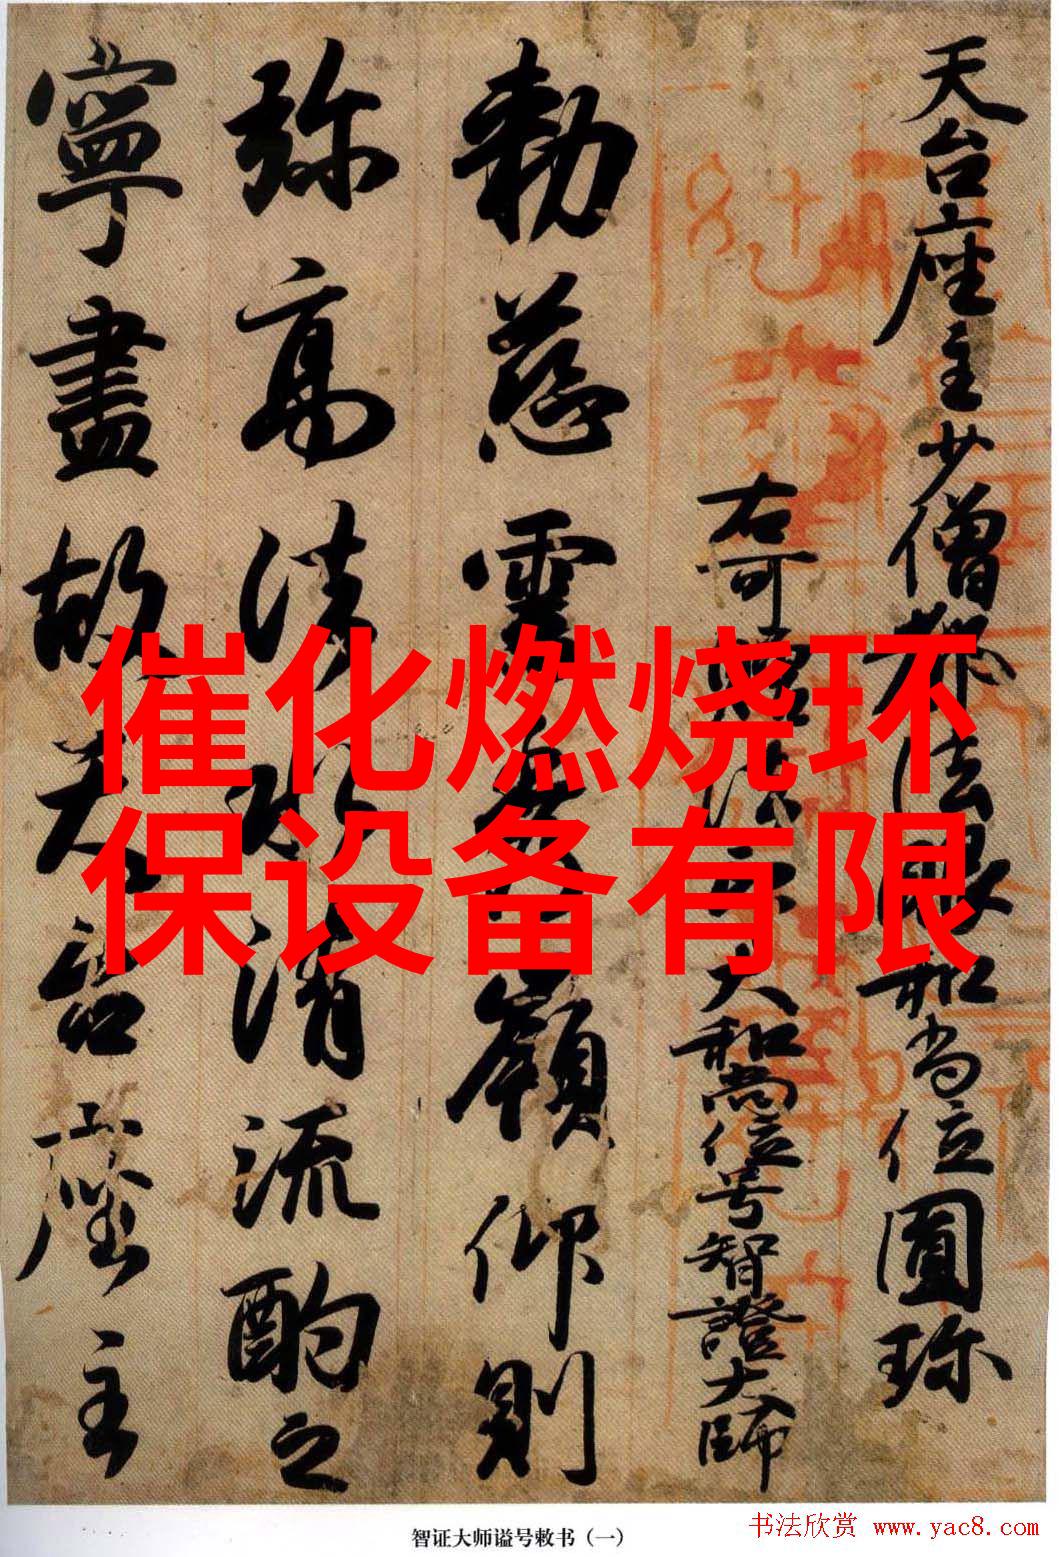 天台座主少僧都法眼和尚位圓珍
右可贈法印大和尚位号智證大師
勅慈雲秀嶺仰則
弥高法水清流酌之
寧盡故天台座主
催化燃烧环
保设备有限
智证大师谥号敕书（一）
书法欣赏 www.yac8.com